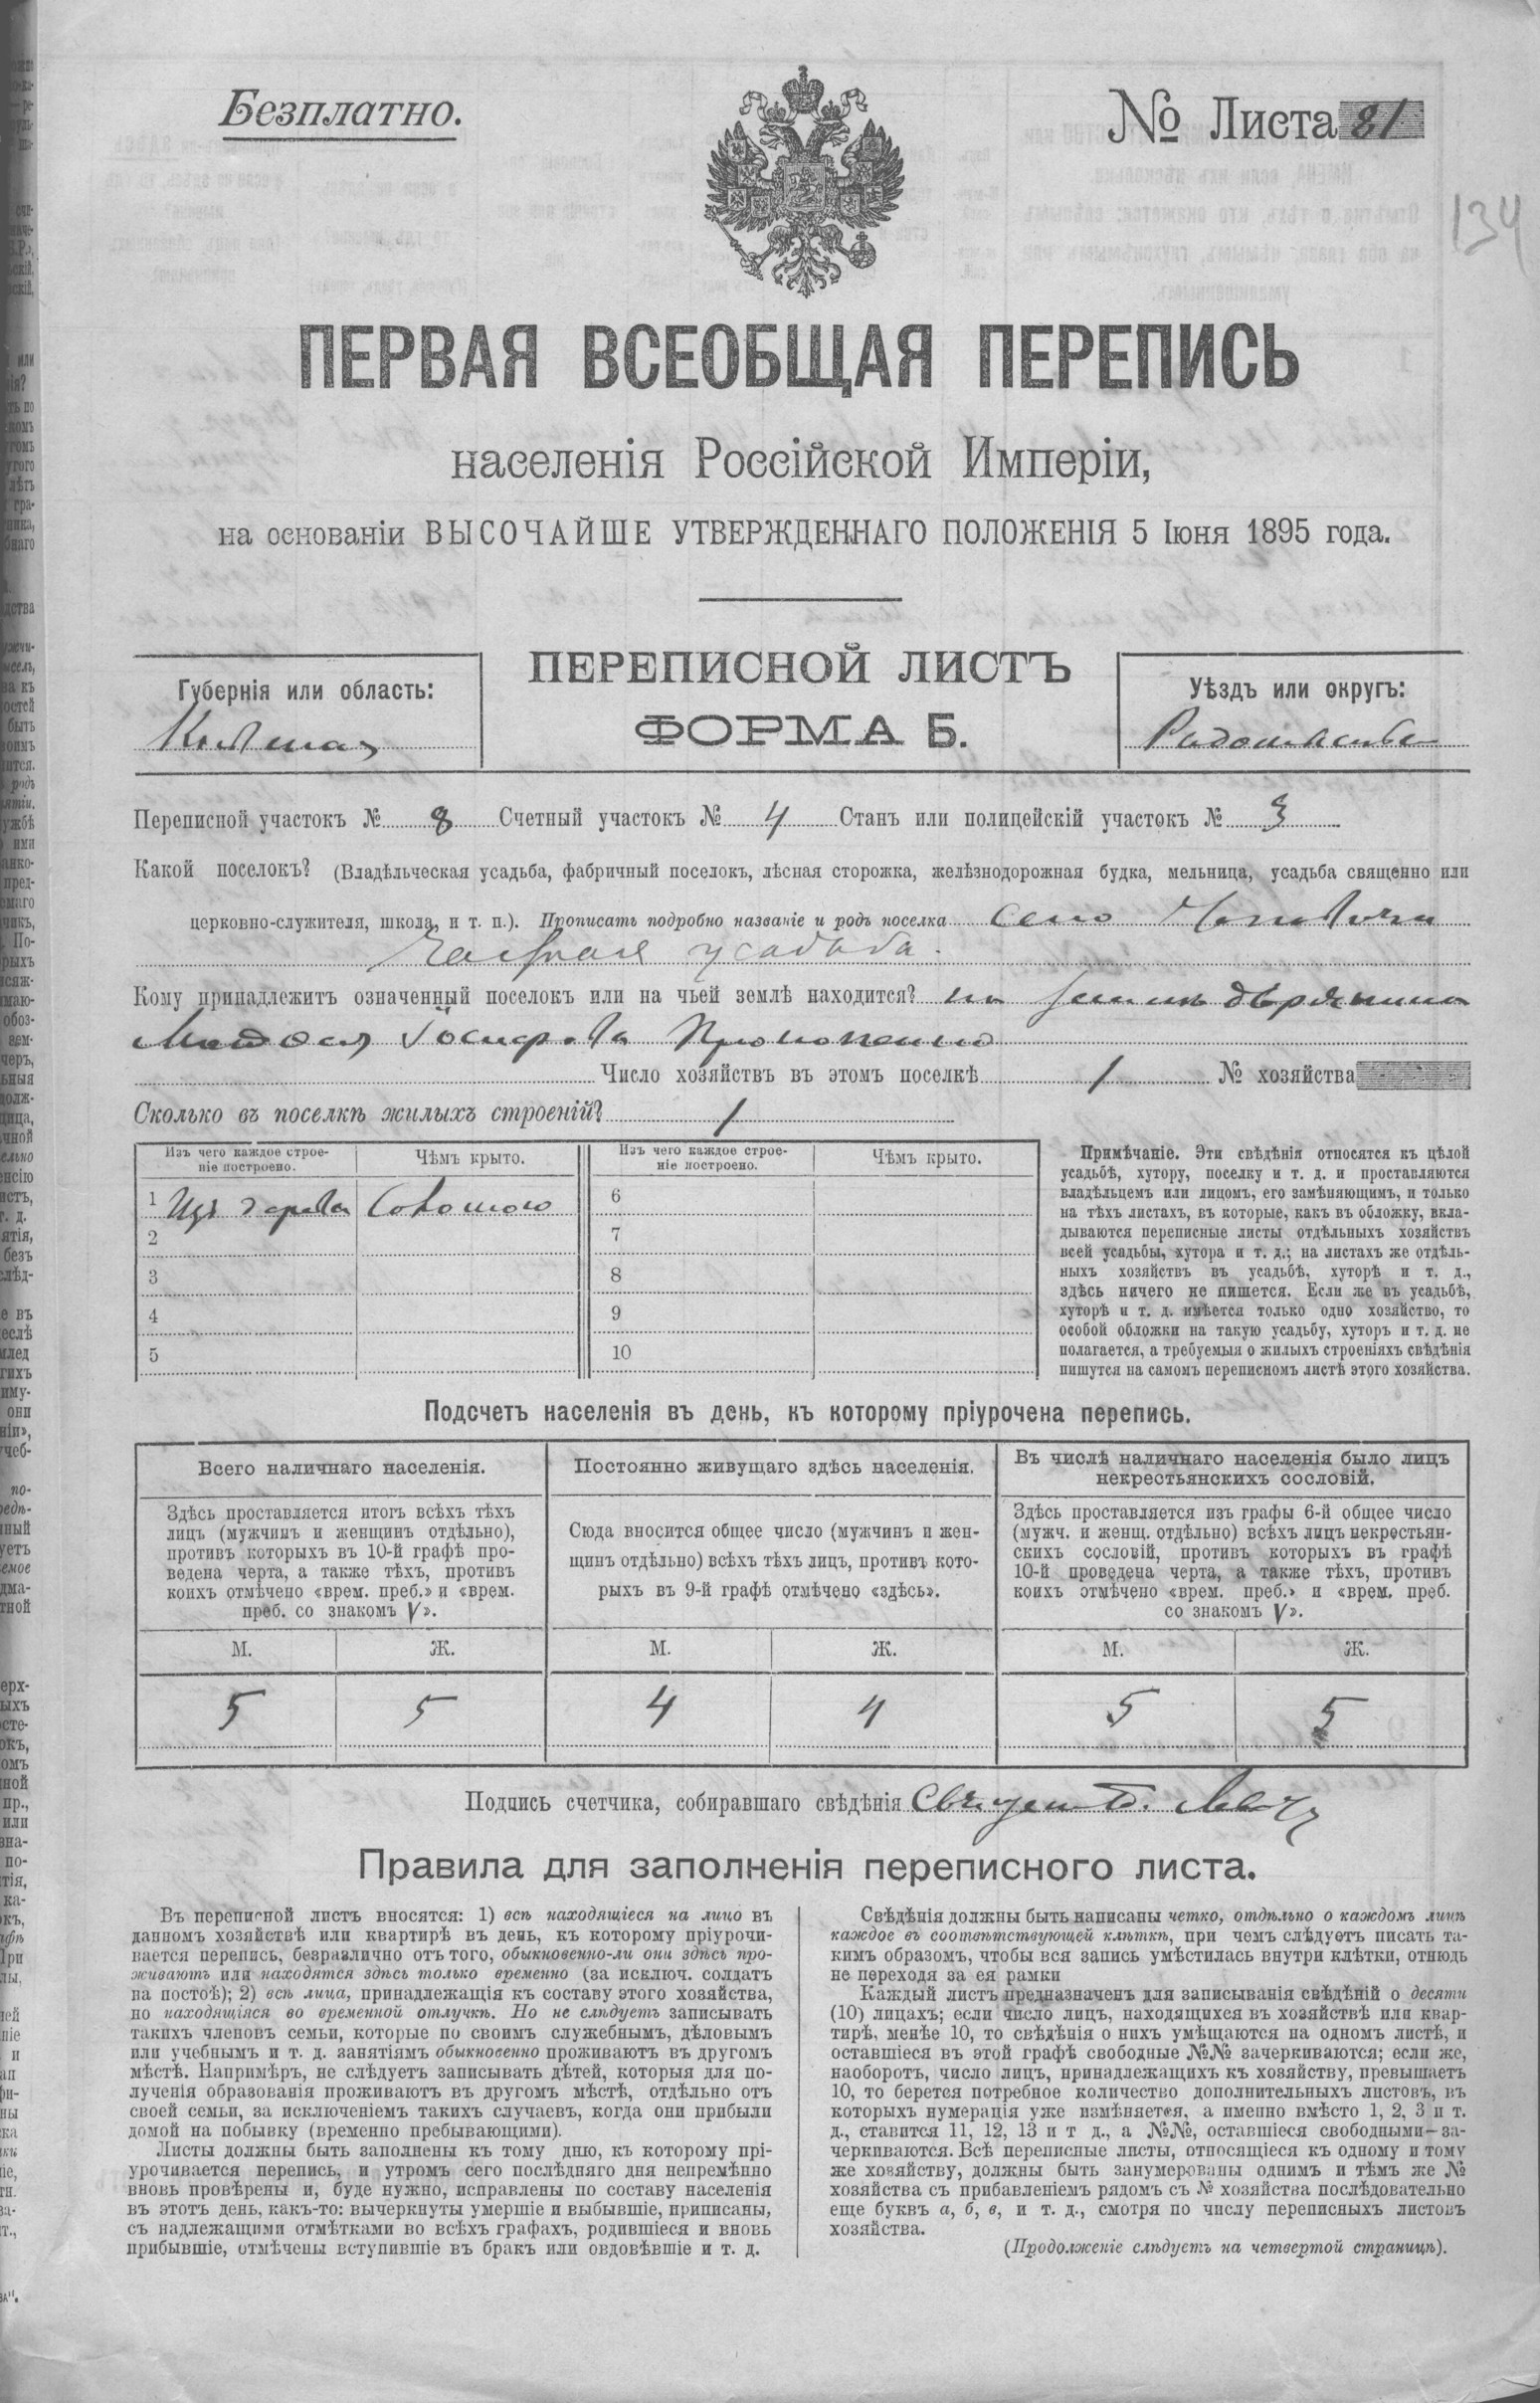 Безплатно.
№ Листа 81
134
ПЕРВАЯ ВСЕОБЩАЯ ПЕРЕПИСЬ
населенія Россійской Имперіи,
на основаніи ВЫСОЧАЙШЕ УТВЕРЖДЕННАГО ПОЛОЖЕНІЯ 5 Іюня 1895 года.
ПЕРЕПИСНОЙ ЛИСТЪ
ФОРМА Б.
Губернія или область:
Кіевская
Уѣздъ или округъ:
Радомысльскій
Переписной участокъ № 8 Счетный участокъ № 4 Станъ или полицейскій участокъ № 3
Какой поселокъ? (Владѣльческая усадьба, фабричный поселокъ, лѣсная сторожка, желѣзнодорожная будка, мельница, усадьба священно или
церковно-служителя, школа, и т. п.). Прописать подробно названіе и родъ поселка село
усадьба.
Кому принадлежитъ означенный поселокъ или на чьей землѣ находится? на землѣ дворянина
Число хозяйствъ въ этомъ поселкѣ 1 № хозяйства
Сколько въ поселкѣ жилыхъ строеній? 1
Изъ чего каждое строе-
ніе построено.
Чѣмъ крыто.
Изъ чего каждое строе-
ніе построено.
Чѣмъ крыто.
1 Изъ дерева Соломою
2
3
4
5
6
7
8
9
10
Примѣчаніе. Эти свѣдѣнія относятся къ цѣлой
усадьбѣ, хутору, поселку и т. д. и проставляются
владѣльцемъ или лицомъ, его замѣняющимъ, и только
на тѣхъ листахъ, въ которые, какъ въ обложку, вкла-
дываются переписные листы отдѣльныхъ хозяйствъ
всей усадьбы, хутора и т. д.; на листахъ же отдѣль-
ныхъ хозяйствъ въ усадьбѣ, хуторѣ и т. д.,
здѣсь ничего не пишется. Если же въ усадьбѣ,
хуторѣ и т. д. имѣется только одно хозяйство, то
особой обложки на такую усадьбу, хуторъ и т. д. не
полагается, а требуемыя о жилыхъ строеніяхъ свѣдѣнія
пишутся на самомъ переписномъ листѣ этого хозяйства.
Подсчетъ населенія въ день, къ которому пріурочена перепись.
Всего наличнаго населенія.
Здѣсь проставляется итогъ всѣхъ тѣхъ
лицъ (мужчинъ и женщинъ отдѣльно),
противъ которыхъ въ 10-й графѣ про-
ведена черта, а также тѣхъ, противъ
коихъ отмѣчено «врем. преб.» и «врем.
преб. со знакомъ V».
М. Ж.
5 5
Постоянно живущаго здѣсь населенія.
Сюда вносится общее число (мужчинъ и жен-
щинъ отдѣльно) всѣхъ тѣхъ лицъ, противъ кото-
рыхъ въ 9-й графѣ отмѣчено «здѣсь».
М. Ж.
4 4
Въ числѣ наличнаго населенія было лицъ
некрестьянскихъ сословій.
Здѣсь проставляется изъ графы 6-й общее число
(мужч. и женщ. отдѣльно) всѣхъ лицъ некрестьян-
скихъ сословій, противъ которыхъ въ графѣ
10-й проведена черта, а также тѣхъ, противъ
коихъ отмѣчено «врем. преб.» и «врем. преб.
со знакомъ V».
М. Ж.
5 5
Подпись счетчика, собиравшаго свѣдѣнія
Правила для заполненія переписного листа.
Въ переписной листъ вносятся: 1) всѣ находящіеся на лицо въ
данномъ хозяйствѣ или квартирѣ въ день, къ которому пріурочи-
вается перепись, безразлично отъ того, обыкновенно-ли они здѣсь про-
живаютъ или находятся здѣсь только временно (за исключ. солдатъ
на постоѣ); 2) всѣ лица, принадлежащія къ составу этого хозяйства,
но находящіяся во временной отлучкѣ. Но не слѣдуетъ записывать
такихъ членовъ семьи, которые по своимъ служебнымъ, дѣловымъ
или учебнымъ и т. д. занятіямъ обыкновенно проживаютъ въ другомъ
мѣстѣ. Напримѣръ, не слѣдуетъ записывать дѣтей, которыя для по-
лученія образованія проживаютъ въ другомъ мѣстѣ, отдѣльно отъ
своей семьи, за исключеніемъ такихъ случаевъ, когда они прибыли
домой на побывку (временно пребывающими).
Листы должны быть заполнены къ тому дню, къ которому прі-
урочивается перепись, и утромъ сего послѣдняго дня непремѣнно
вновь провѣрены и, буде нужно, исправлены по составу населенія
въ этотъ день, какъ-то: вычеркнуты умершіе и выбывшіе, приписаны,
съ надлежащими отмѣтками во всѣхъ графахъ, родившіеся и вновь
прибывшіе, отмѣчены вступившіе въ бракъ или овдовѣвшіе и т. д.
Свѣдѣнія должны быть написаны четко, отдѣльно о каждомъ лицѣ
каждое въ соотвѣтствующей клѣткѣ, при чемъ слѣдуетъ писать та-
кимъ образомъ, чтобы вся запись умѣстилась внутри клѣтки, отнюдь
не переходя за ея рамки
Каждый листъ предназначенъ для записыванія свѣдѣній о десяти
(10) лицахъ; если число лицъ, находящихся въ хозяйствѣ или квар-
тирѣ, менѣе 10, то свѣдѣнія о нихъ умѣщаются на одномъ листѣ, и
оставшіеся въ этой графѣ свободные №№ зачеркиваются; если же,
наоборотъ, число лицъ, принадлежащихъ къ хозяйству, превышаетъ
10, то берется потребное количество дополнительныхъ листовъ, въ
которыхъ нумерація уже измѣняется, а именно вмѣсто 1, 2, 3 и т.
д., ставится 11, 12, 13 и т д., а №№, оставшіеся свободными—за-
черкиваются. Всѣ переписные листы, относящіеся къ одному и тому
же хозяйству, должны быть занумерованы однимъ и тѣмъ же №
хозяйства съ прибавленіемъ рядомъ съ № хозяйства послѣдовательно
еще буквъ а, б, в, и т. д., смотря по числу переписныхъ листовъ
хозяйства.
(Продолженіе слѣдуетъ на четвертой страницѣ).